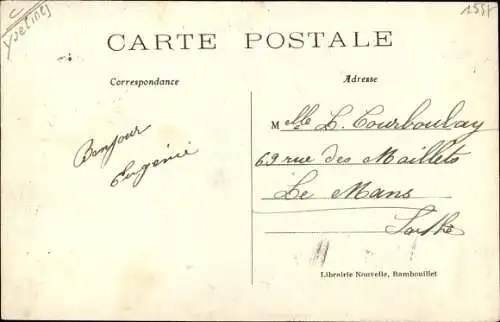 Yvelines
1557
CARTE POSTALE
Correspondance
Adresse
Bonjour
Eugénie
Mlle L. Courboulay
69 rue des Maillets
Le Mans
Sarthe
Librairie Nouvelle, Rambouillet